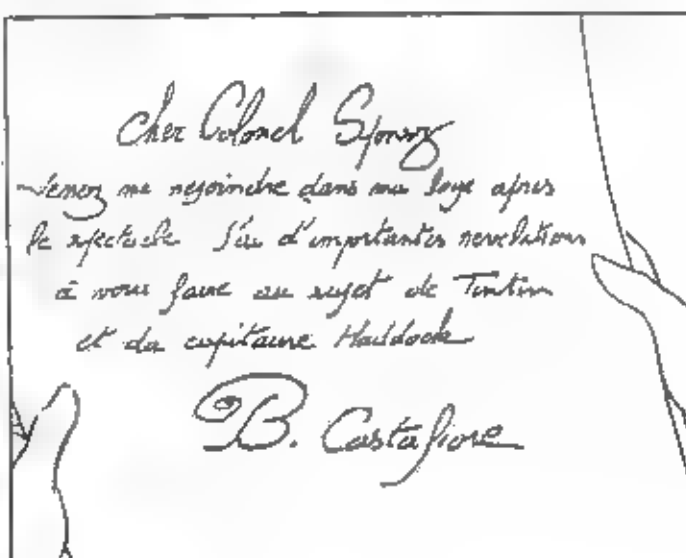 Cher Colonel Sponsz
Venez me rejoindre dans ma loge après
le spectacle J'ai d'importantes revelations
à vous faire au sujet de Tintin
et du capitaine Haddock
B. Castafiore